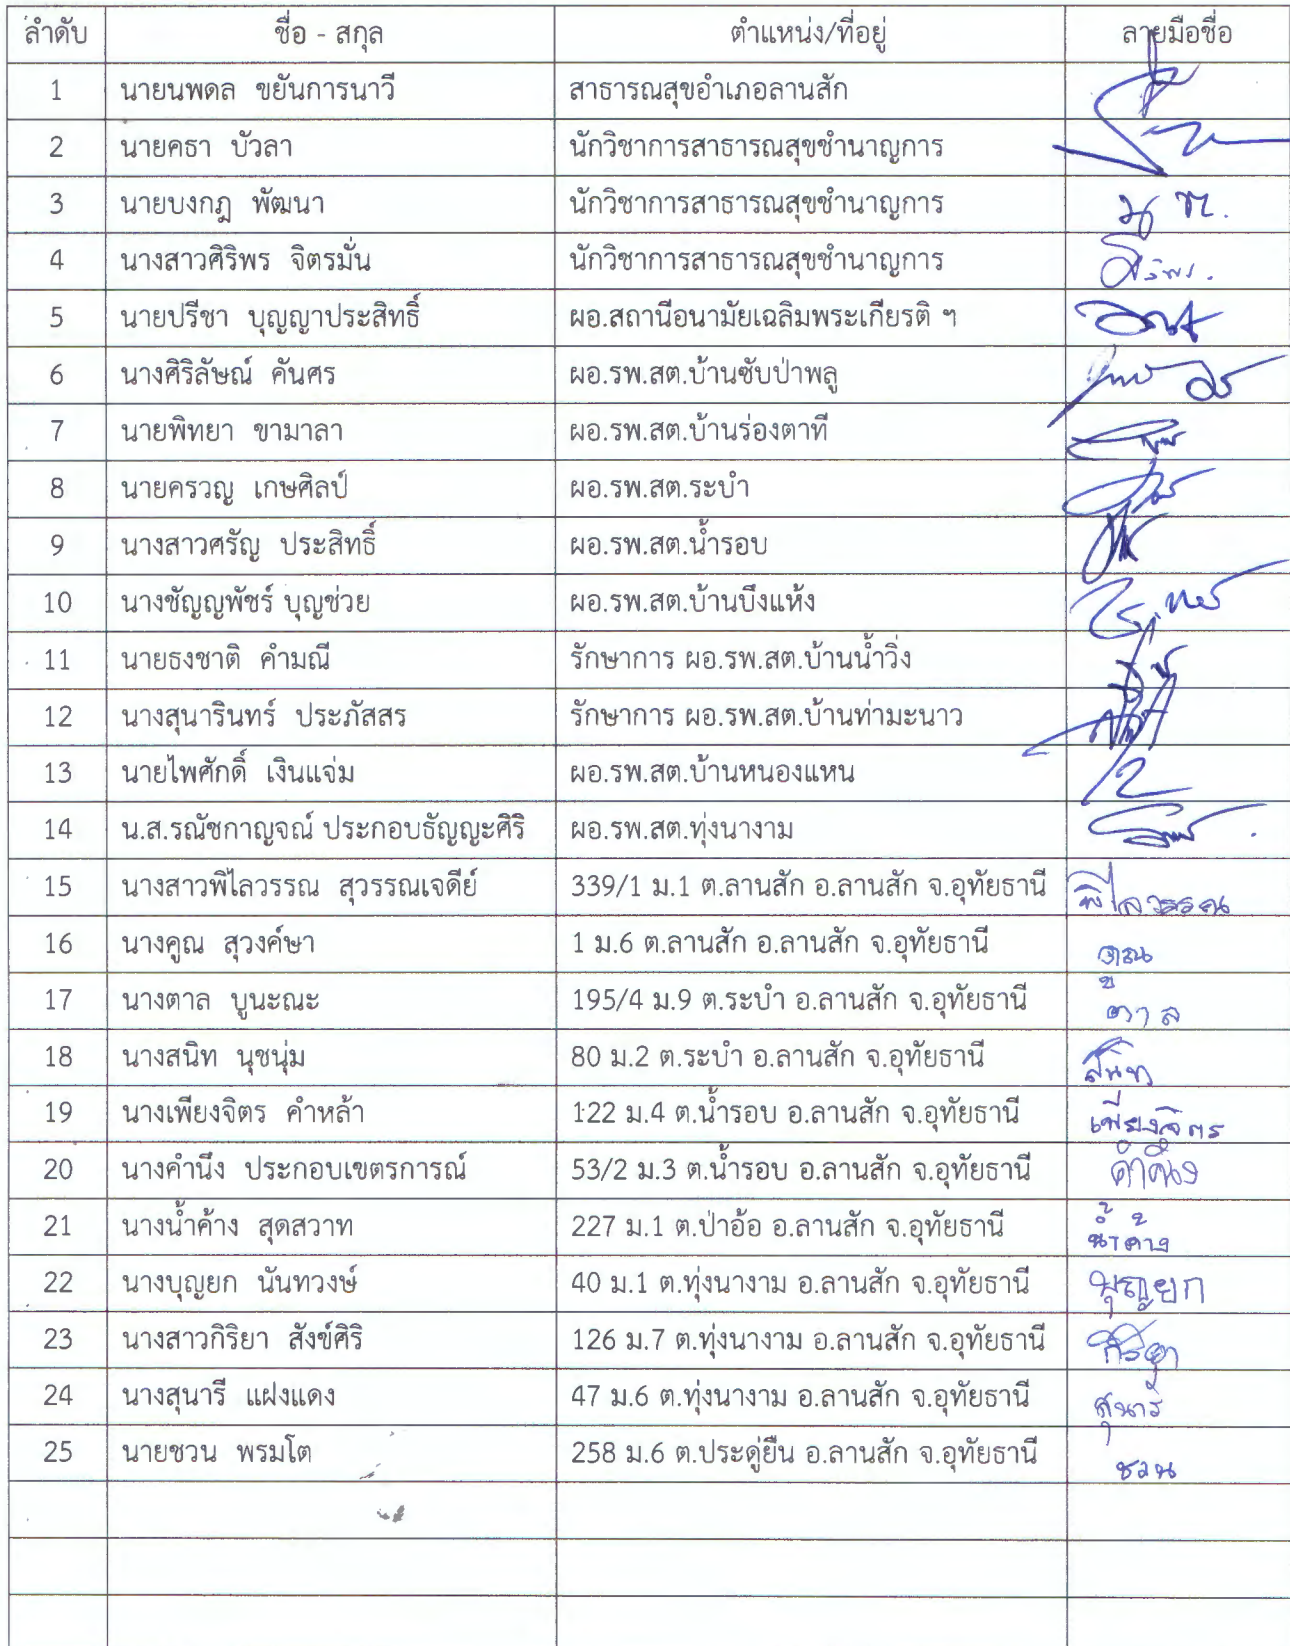 ลำดับ ชื่อ - สกุล ตำแหน่ง/ที่อยู่ ลายมือชื่อ
1 นายนพดล ขยันการนาวี สาธารณสุขอำเภอลานสัก
2 นายคธา บัวลา นักวิชาการสาธารณสุขชำนาญการ
3 นายบงกฎ พัฒนา นักวิชาการสาธารณสุขชำนาญการ
4 นางสาวศิริพร จิตรมั่น นักวิชาการสาธารณสุขชำนาญการ ศิริพร.
5 นายปรีชา บุญญาประสิทธิ์ ผอ.สถานีอนามัยเฉลิมพระเกียรติ ฯ
6 นางศิริลัษณ์ คันศร ผอ.รพ.สต.บ้านซับป่าพลู
7 นายพิทยา ขามาลา ผอ.รพ.สต.บ้านร่องตาที
8 นายครวญ เกษศิลป์ ผอ.รพ.สต.ระบำ
9 นางสาวศรัญ ประสิทธิ์ ผอ.รพ.สต.น้ำรอบ
10 นางชัญญพัชร์ บุญช่วย ผอ.รพ.สต.บ้านบึงแห้ง
11 นายธงชาติ คำมณี รักษาการ ผอ.รพ.สต.บ้านน้ำวิ่ง
12 นางสุนารินทร์ ประภัสสร รักษาการ ผอ.รพ.สต.บ้านท่ามะนาว
13 นายไพศักดิ์ เงินแจ่ม ผอ.รพ.สต.บ้านหนองแหน
14 น.ส.รณัชกาญจณ์ ประกอบธัญญะศิริ ผอ.รพ.สต.ทุ่งนางาม
15 นางสาวพิไลวรรณ สุวรรณเจดีย์ 339/1 ม.1 ต.ลานสัก อ.ลานสัก จ.อุทัยธานี พิไลวรรณ
16 นางคูณ สุวงค์ษา 1 ม.6 ต.ลานสัก อ.ลานสัก จ.อุทัยธานี
17 นางตาล บูนะณะ 195/4 ม.9 ต.ระบำ อ.ลานสัก จ.อุทัยธานี
18 นางสนิท นุชนุ่ม 80 ม.2 ต.ระบำ อ.ลานสัก จ.อุทัยธานี สนิท
19 นางเพียงจิตร คำหล้า 122 ม.4 ต.น้ำรอบ อ.ลานสัก จ.อุทัยธานี เพียงจิตร
20 นางคำนึง ประกอบเขตรการณ์ 53/2 ม.3 ต.น้ำรอบ อ.ลานสัก จ.อุทัยธานี คำนึง
21 นางน้ำค้าง สุดสวาท 227 ม.1 ต.ป่าอ้อ อ.ลานสัก จ.อุทัยธานี น้ำค้าง
22 นางบุญยก นันทวงษ์ 40 ม.1 ต.ทุ่งนางาม อ.ลานสัก จ.อุทัยธานี บุญยก
23 นางสาวกิริยา สังข์ศิริ 126 ม.7 ต.ทุ่งนางาม อ.ลานสัก จ.อุทัยธานี กิริยา
24 นางสุนารี แฝงแดง 47 ม.6 ต.ทุ่งนางาม อ.ลานสัก จ.อุทัยธานี สุนารี
25 นายชวน พรมโต 258 ม.6 ต.ประดู่ยืน อ.ลานสัก จ.อุทัยธานี ชวน